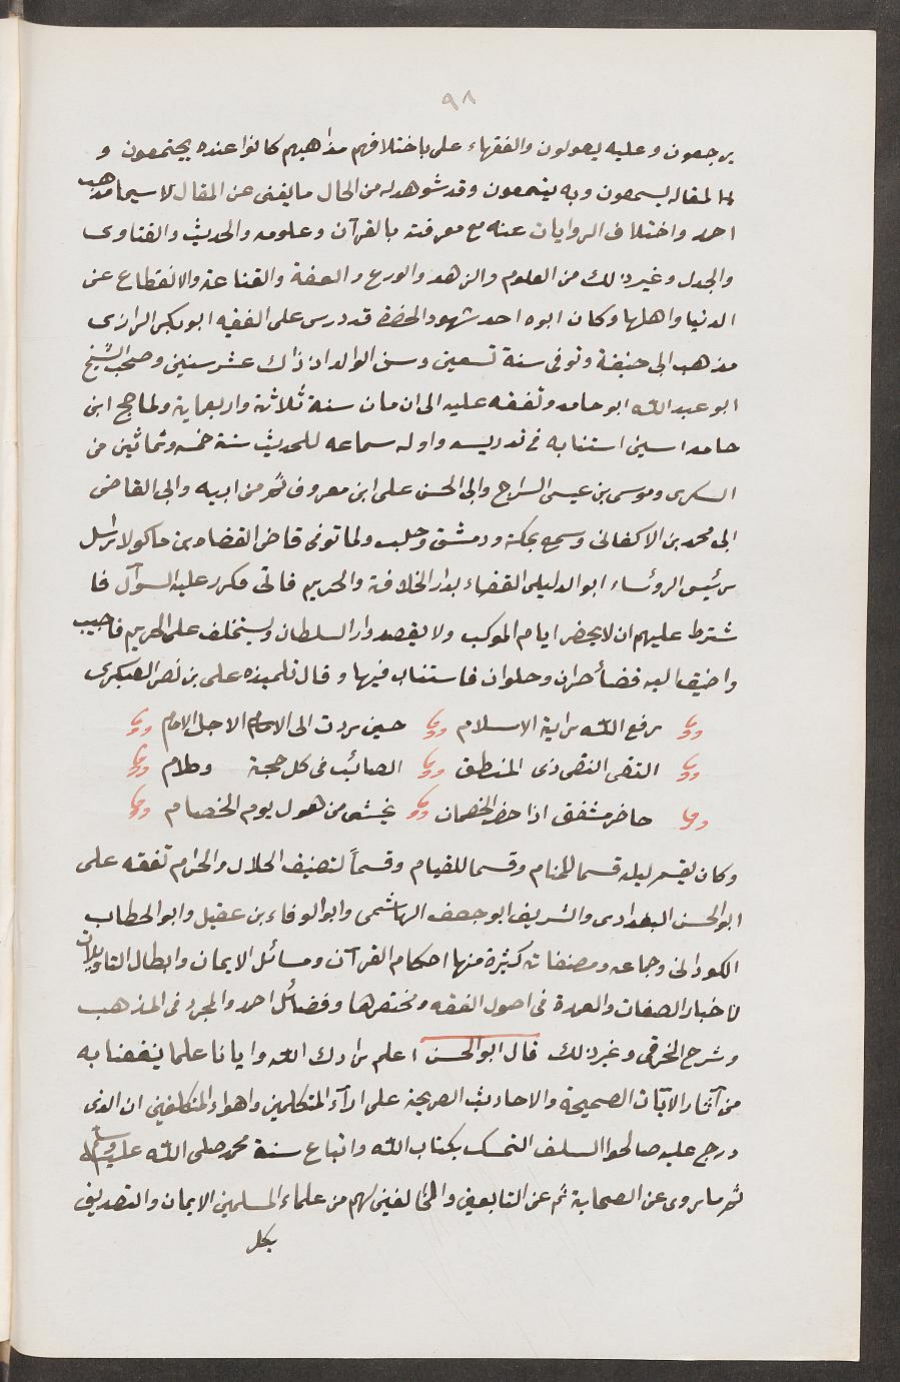 ٩٨
يرجعون وعليه يعولون والفقهاء على باختلافهم مذاهبهم كانوا عنده يجتمعون و
لمقاله يسمعون وبه ينتمعون وقد شوهد له من الحال ما يغنى عن المقال لا سيما مذهب
احمد واختلاف الروايات عنه مع معرفته بالقرآن وعلومه والحديث والفتاوى
والجدل وغير ذلك من العلوم والزهد والورع والعفة والقناعة والانقطاع عن
الدنيا واهلها وكان ابوه احد شهود الحضرة قد درس على الفقيه ابو بكر الرازى
مذهب ابى حنيفة وتوفى سنة تسعين وسن الوالد اذ ذاك عشر سنين وصحب الشيخ
ابو عبد الله ابو حامد وتفقه عليه الى ان مات سنة ثلاثة واربعماية ولما حج ابن
حامد استنابه فى تدريسه واوله سماعه للحديث سنة خمسه وثمانين من
السكرى وموسى بن عيسى السراج وابى الحسن على ابن معروف ثم من ابيه وابى القاضى
ابى محمد بن الاكفانى وسمع بمكة ودمشق وحلب ولما توفى قاضى القضاه بن ماكولا راسل
رئيس الرؤساء ابو الد ليلى القضاء بدار الخلافة والحريم فاتى فكرر عليه السوآل فا
شترط عليهم ان لا يحضر ايام الموكب ولا يقصد دار السلطان ويستخلف على الحريم فاجيب
واضيف اليه قضاء حران وحلوان فاستناب فيها وقال تلميذه على بن نصر العكبرى
رفع الله راية الاسلام حين ردت الى الامام الاجل الامام
التقى النقى ذى المنطق الصائب فى كل حجة وكلام
خاخر مشفق اذا حضر الخصمان يخشى من هول يوم الخصام
وكان يقسم ليله قسما للمنام وقسما للقيام وقسماً لتصنيف الحلال والحرام تفقه على
ابو الحسن البغدادى والشريف ابو جعف الهاشمى وابو الوفاء بن عقيل وابو الخطاب
الكوذانى وجماعه ومصنفاته كثيرة منها احكام القرآن ومسائل الايمان وابطال التاويلات
لاخبار الصفات والعمدة فى اصول الفقه ومختصرها وفضائل احمد والمجرد فى المذهب
وشرح الخرقى وغير ذلك قال ابو الحسن اعلم زادك الله وايانا علما ينفعنا به
من آثار الآيات الصحيحة والاحاديث الصريحة على ارآء المتكلمين واهواء المتكلفين ان الذى
درج عليه صالحوا السلف التمسك بكتاب الله واتباع سنة محمد صلى الله عليه وسلم
ثم ما روى عن الصحابة ثم عن التابعين والخالفين لهم من علماء المسلمين الايمان والتصديق
بكل